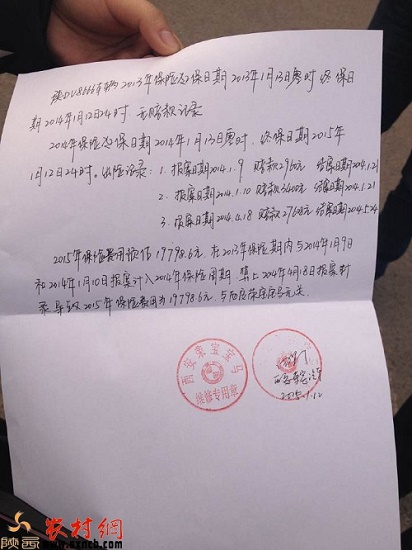 陕DV8666车辆2013年保险及保日期2013年1月13日零时 终保日
期2014年1月12日24时 无赔款记录
2014年保险及保日期2014年1月13日零时. 终保日期2015年
1月12日24时. 出险记录: 1. 报案日期2014.1.9 赔款2960元 结案日期2014.1.21
2. 报案日期2014.1.10 赔款3400元 结案日期2014.1.21
3. 报案日期2014.4.18 赔款2760元 结案日期2014.5.24
2015年保险费用预估19798.6元. 在2013年保险期内与2014年1月9日
和2014年1月10日报案计入2014年保险周期 算上2014年4月18日报案
录 导致2015年保险费用为19798.6元 与
无关.
西安荣宝宝马
维修专用章
2015.1.12
陕西农村網
www.sxncb.com